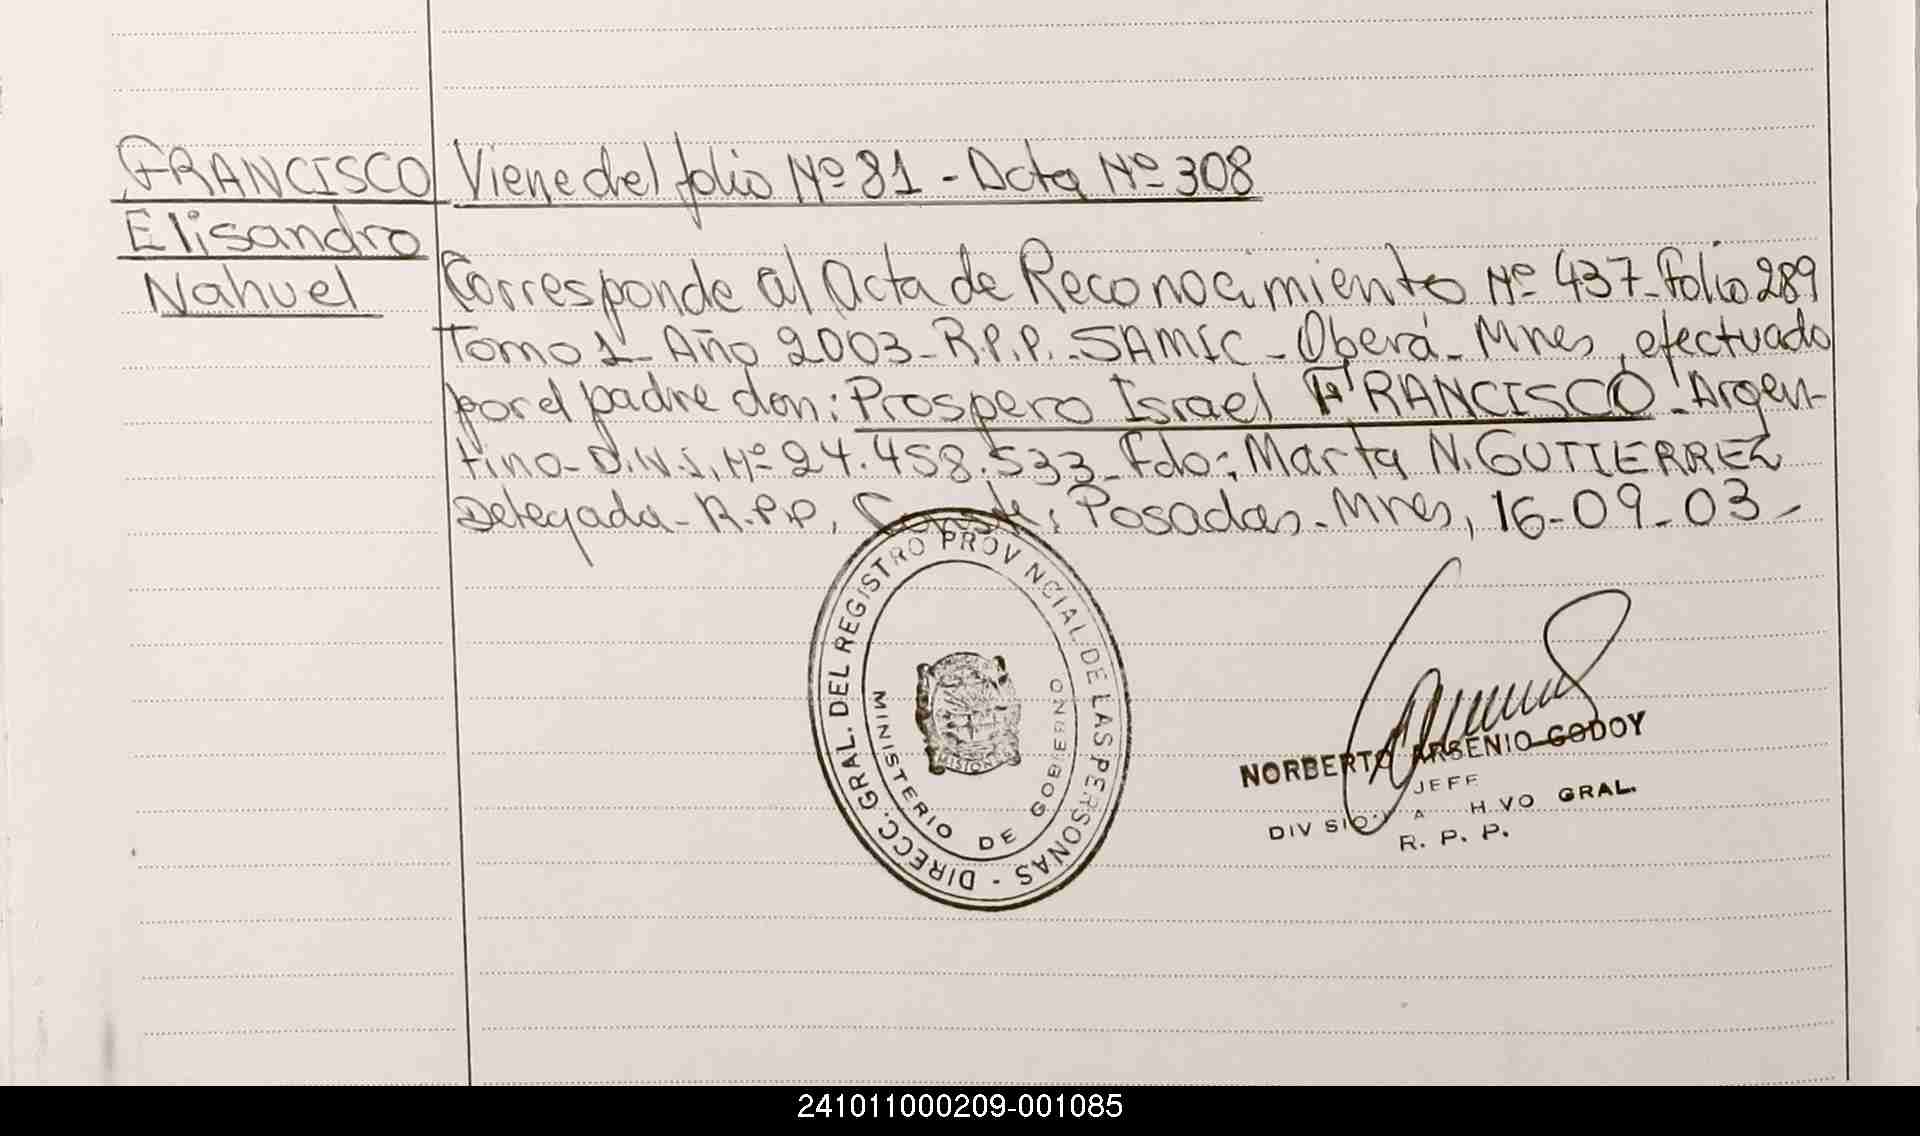 FRANCISCO
Elisandro
Nahuel
Viene del folio Nº 81 - Acta Nº 308
Corresponde al Acta de Reconocimiento Nº 437-folio 289
Tomo 1- Año 2003- R.P.P.-SAMIC - Oberá- Mnes, efectuado
por el padre don: Prospero Israel FRANCISCO - Argen-
tino- D.N.I. Nº 24.458.533- Fdo: Marta N. GUTIERREZ
Delegada- R.P.P. Conste: Posadas- Mnes, 16-09-03-
DIRECC. GRAL. DEL REGISTRO PROV NCIAL DE LAS PERSONAS -
MINISTERIO DE GOBIERNO
MISIONE
NORBERTO ARSENIO GODOY
JEFE
DIV SIO A H VO GRAL.
R. P. P.
241011000209-001085